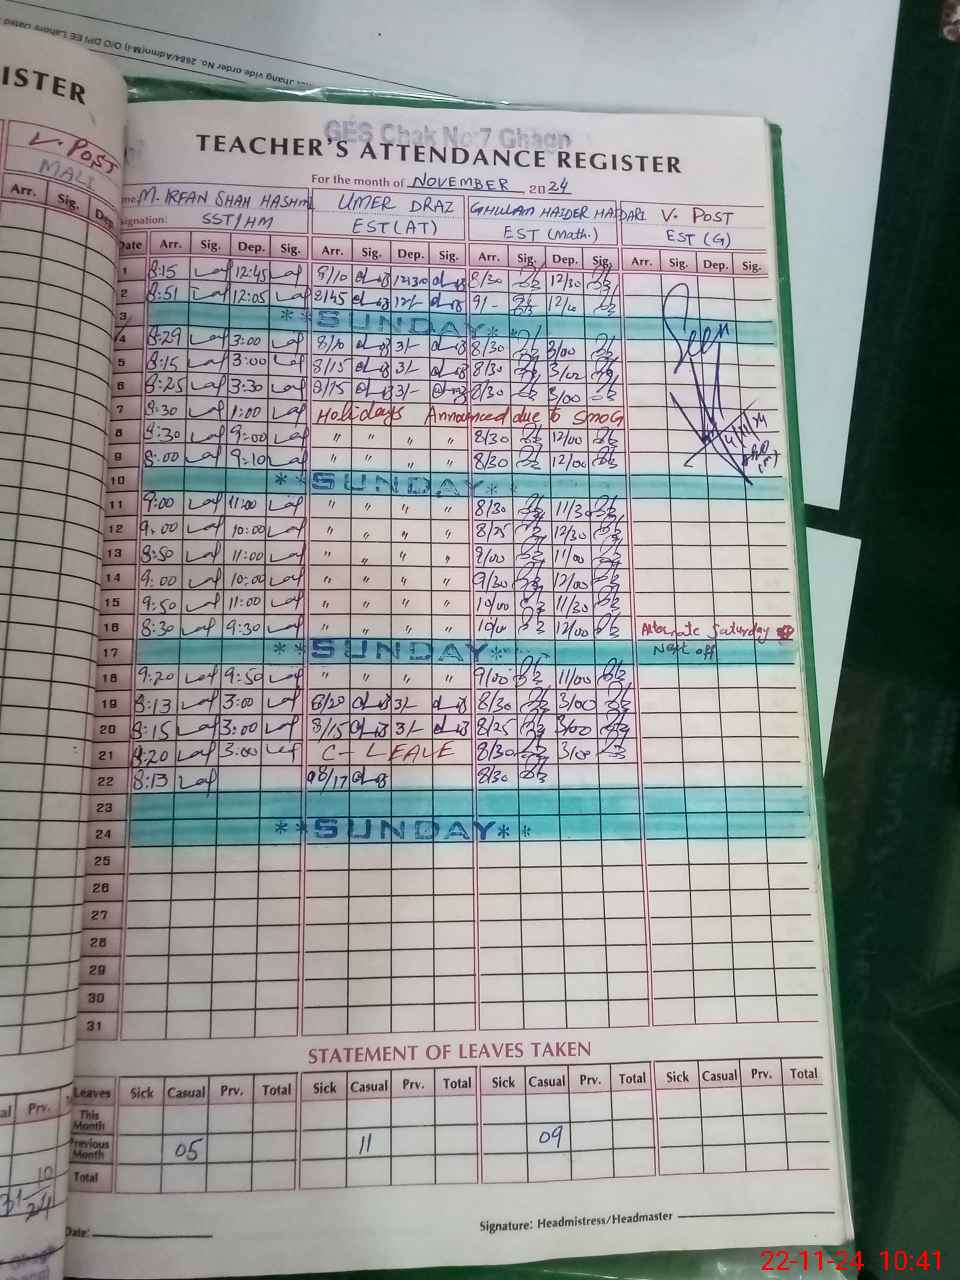 Jhang vide order No. 2684/Admn(M-I) O/O DPI EE Lahore Dated
ISTER
V. POST
MALI
Arr. Sig. Dep.
GES Chak No 7 Ghagn
TEACHER'S ATTENDANCE REGISTER
For the month of NOVEMBER 2024
M. IRFAN SHAH HASHMI UMER DRAZ GHULAM HAIDER HAIDARI V. POST
signation: SST/HM EST(AT) EST (Math.) EST (G)
Date Arr. Sig. Dep. Sig. Arr. Sig. Dep. Sig. Arr. Sig. Dep. Sig. Arr. Sig. Dep. Sig.
1 8:15 12:45 9/10 12/30 8/30 12/30
2 8:51 12:05 8/45 12/- 9/- 12/10
3 **SUNDAY**
4 8:29 3:00 8/10 3/- 8/30 3/00
Seen
5 8:15 3:00 8/15 3/- 8/30 3/02
6 8:25 3:30 8/15 3/- 8/30 3/00
7 8:30 1:00 Holidays Announced due to SMOG
8 8:30 9:00 " " " " 8/30 12/00
9 8:00 9:10 " " " " 8/30 12/00
10 **SUNDAY**
11 9:00 11:00 " " " " 8/30 11/30
12 9:00 10:00 " " " " 8/25 12/30
13 8:50 11:00 " " " " 9/00 11/00
14 9:00 10:00 " " " " 9/30 12/00
15 9:50 11:00 " " " " 10/00 11/30
16 8:30 9:30 " " " " 10/00 12/00 Alternate Saturday
17 **SUNDAY** Next off
18 9:20 9:50 " " " " 9/00 11/00
19 8:13 3:00 8/20 3/- 8/30 3/00
20 8:15 3:00 8/15 3/- 8/25 3/00
21 8:20 3:00 C-LEAVE 8/30 3/00
22 8:13 08/17 8/30
23
24 **SUNDAY**
25
26
27
28
29
30
31
STATEMENT OF LEAVES TAKEN
Leaves Sick Casual Prv. Total Sick Casual Prv. Total Sick Casual Prv. Total Sick Casual Prv. Total
This Month
Previous Month 05 11 09
Total
Prv.
10
Date:
Signature: Headmistress/Headmaster
22-11-24 10:41